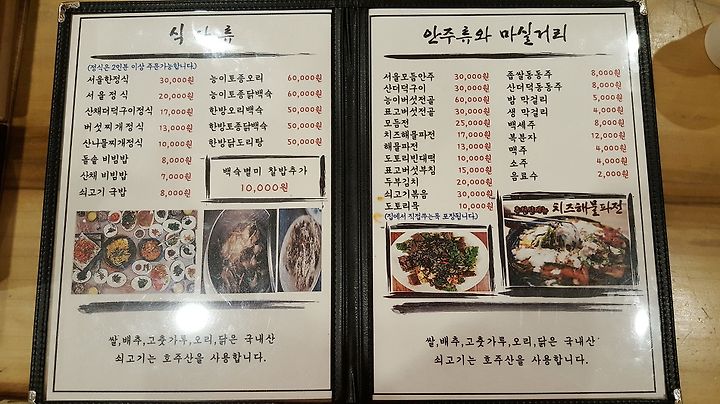 식 사 류
(정식은 2인분 이상 주문가능합니다.)
서울한정식 30,000원
서울정식 20,000원
산채더덕구이정식 17,000원
버섯찌개정식 13,000원
산나물찌개정식 10,000원
돌솥 비빔밥 8,000원
산채 비빔밥 7,000원
쇠고기 국밥 8,000원
능이토종오리 60,000원
능이토종닭백숙 60,000원
한방오리백숙 50,000원
한방토종닭백숙 50,000원
한방닭도리탕 50,000원
백숙별미 찰밥추가
10,000원
쌀,배추,고춧가루,오리,닭은 국내산
쇠고기는 호주산을 사용합니다.
안주류와 마실거리
서울모듬안주 30,000원
산더덕구이 30,000원
능이버섯전골 60,000원
표고버섯전골 30,000원
모듬전 25,000원
치즈해물파전 17,000원
해물파전 13,000원
도토리빈대떡 10,000원
표고버섯부침 15,000원
두부김치 20,000원
쇠고기볶음 30,000원
도토리묵 10,000원
(집에서 직접쑤는묵 포장됩니다)
좁쌀동동주 8,000원
산더덕동동주 8,000원
밤 막걸리 5,000원
생 막걸리 4,000원
백세주 8,000원
복분자 12,000원
맥주 4,000원
소주 4,000원
음료수 2,000원
치즈해물파전
쌀,배추,고춧가루,오리,닭은 국내산
쇠고기는 호주산을 사용합니다.